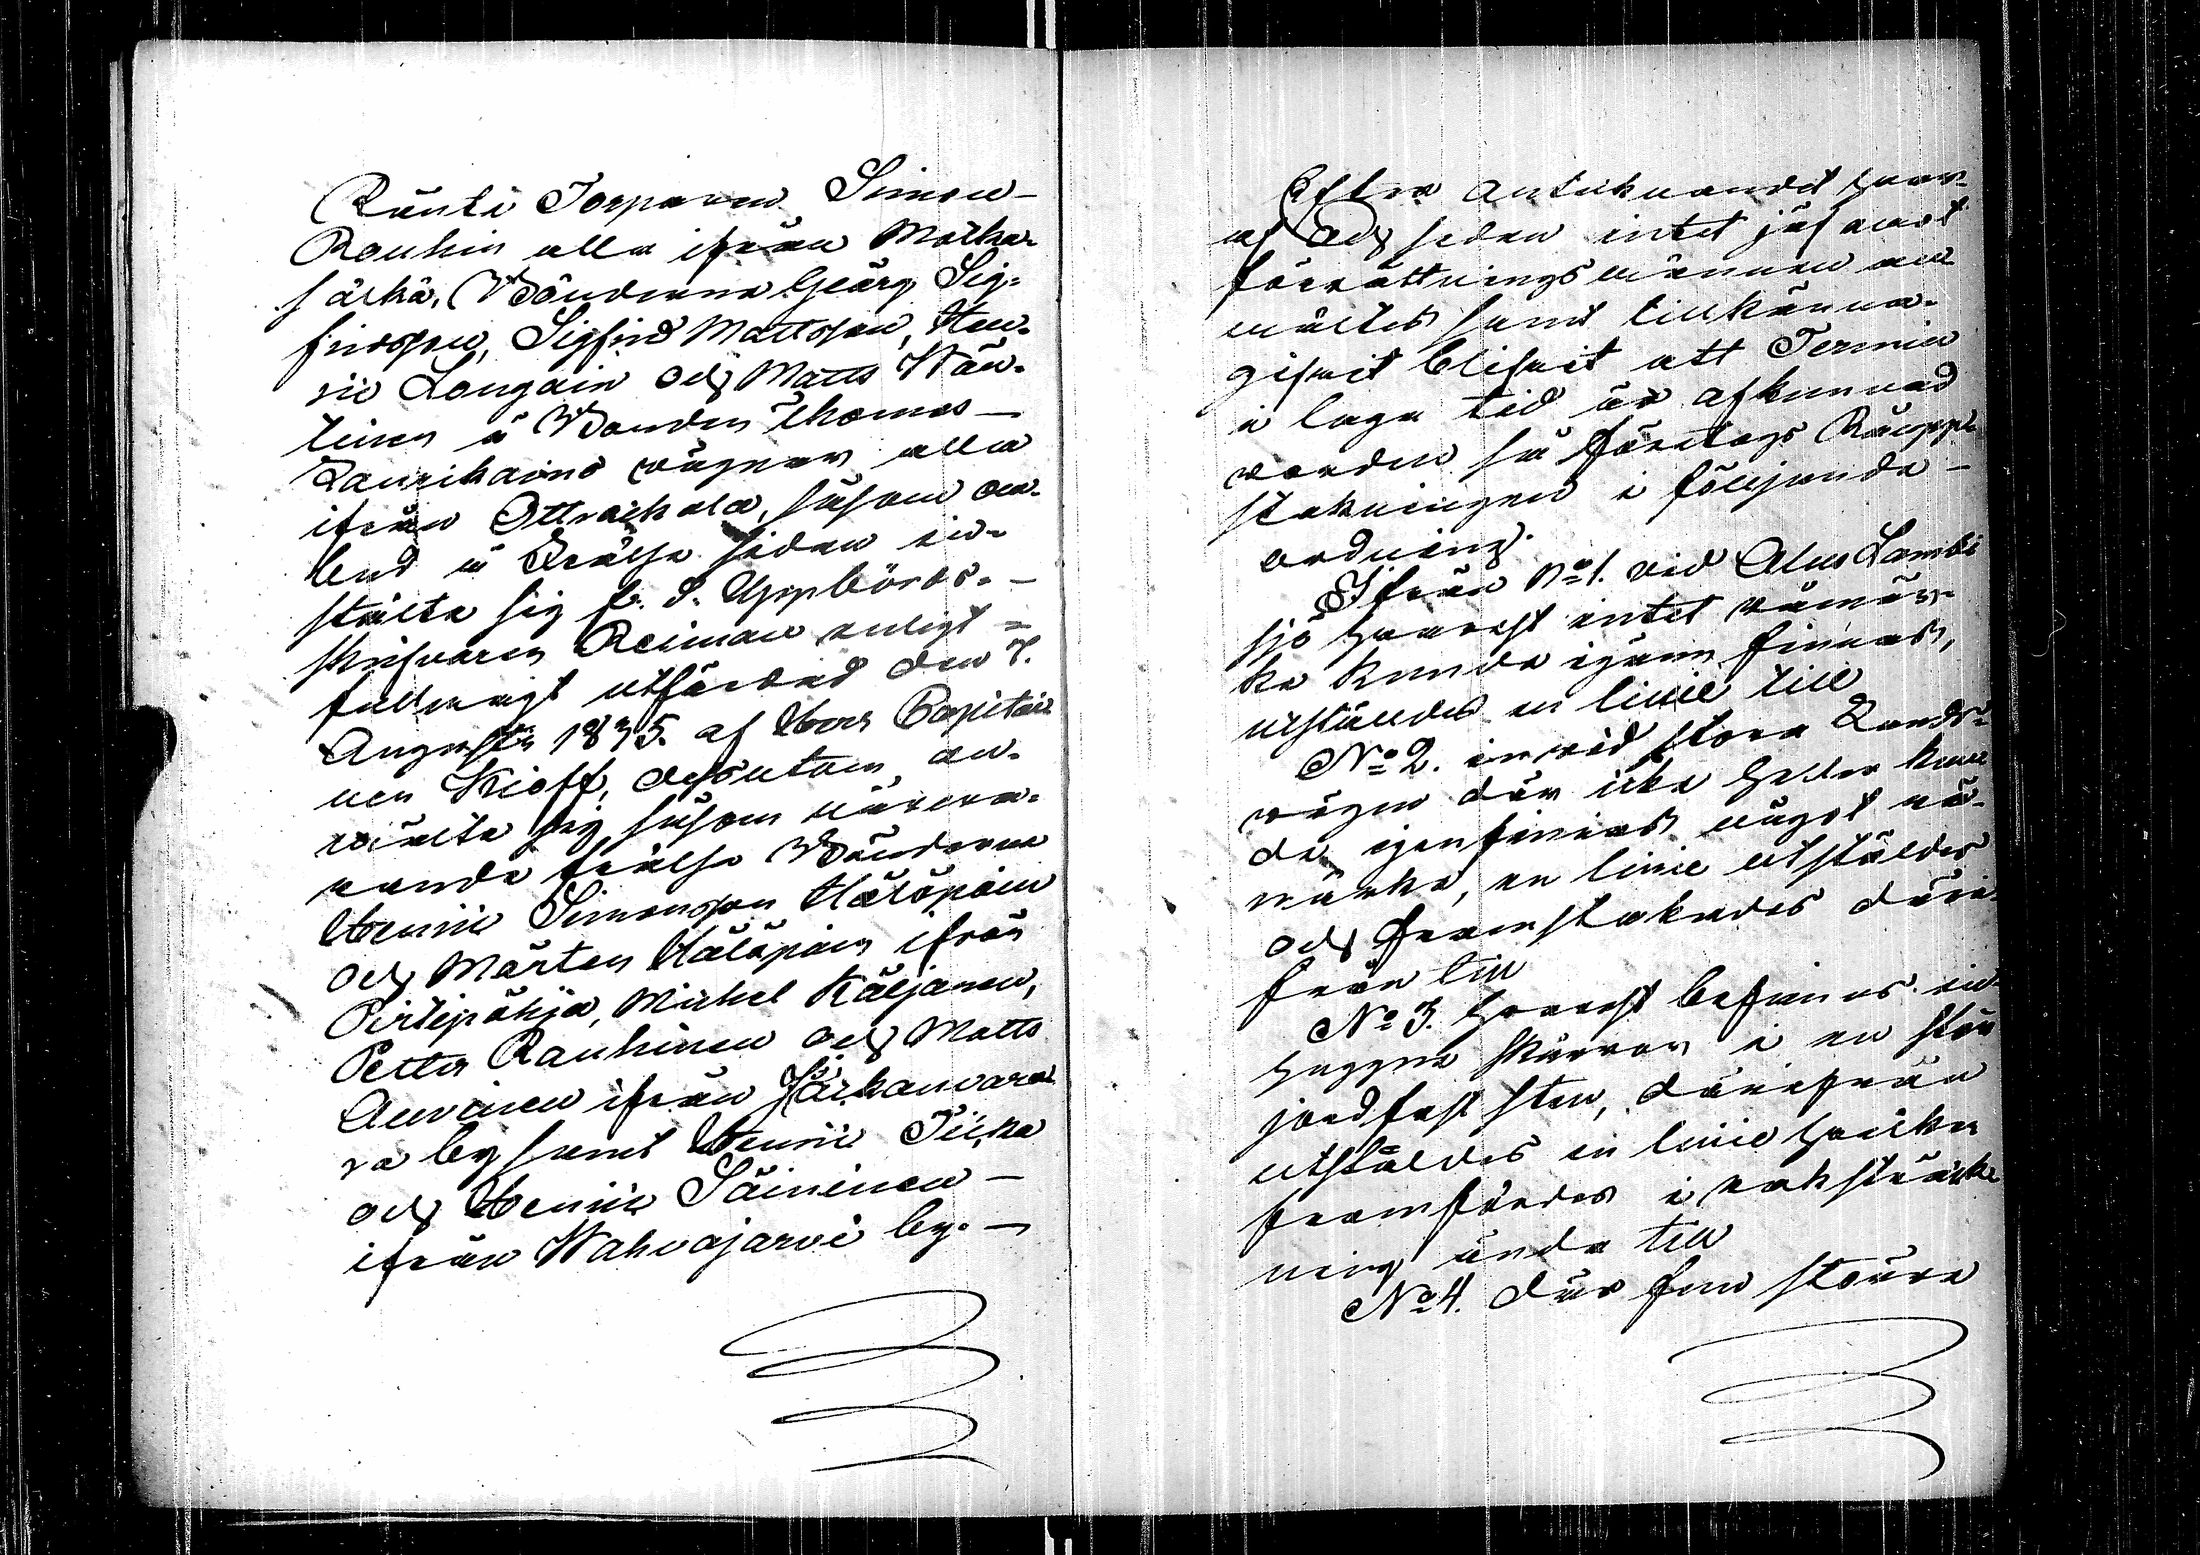 Ränti Torparen Simon
Rouhin alla ifrån Matka
särkä, Bönderne Georg Sig-
fridsson, Sigfrid Mattsson, Hen-
ric Longain och Matts Wän-
tinen å Bonden Thomas
Laurikains vägnar alla
ifrån Ottrackala, såsom om-
bud å Frälse sidan in-
stälte sig f. d. Uppbörds-
skrifvaren Reiman enligt
fullmagt utfärdad den 7.
Augusti 1835. af Herr Capitai-
nen Kioff, dessutom an-
mälte sig såsom närva-
rande frälse Bönderne
Henric Simonsson Hälöpäin
och Mårten Hälöpäin ifrån
Pirttipohja, Michel Käljanen,
Petter Rauhinen och Matts
Auvinen ifrån Särkanvara
ra by samt Henric Tiika
och Henric Säininen
ifrån Wahvajarvi by.
Efter antecknandet häraf
och sedan intet jäf mot
förrättningsmännen an-
mältes samt tillkänna-
gifvit blifvit att Termin
i laga tid är afkunnad
vorden så företogs Råupp-
stakningen i följande
ordning.
Ifrån No 1. vid Alus Lambi
sjö hvarest intet råmär-
ke kunde igänn finnas,
utställdes en linie till
No 2. invid stora Lands-
vägen där icke heller kun-
de igenfinnas något rå-
märke, en linie utstäldes
och framstakades däri-
från till
No 3. hvarest befinnes in-
huggne skärror i en stor
jordfast sten, därifrån
utstäldes en linie hvilken
framfördes i raksträck-
ning ända till
No 4. där fem större